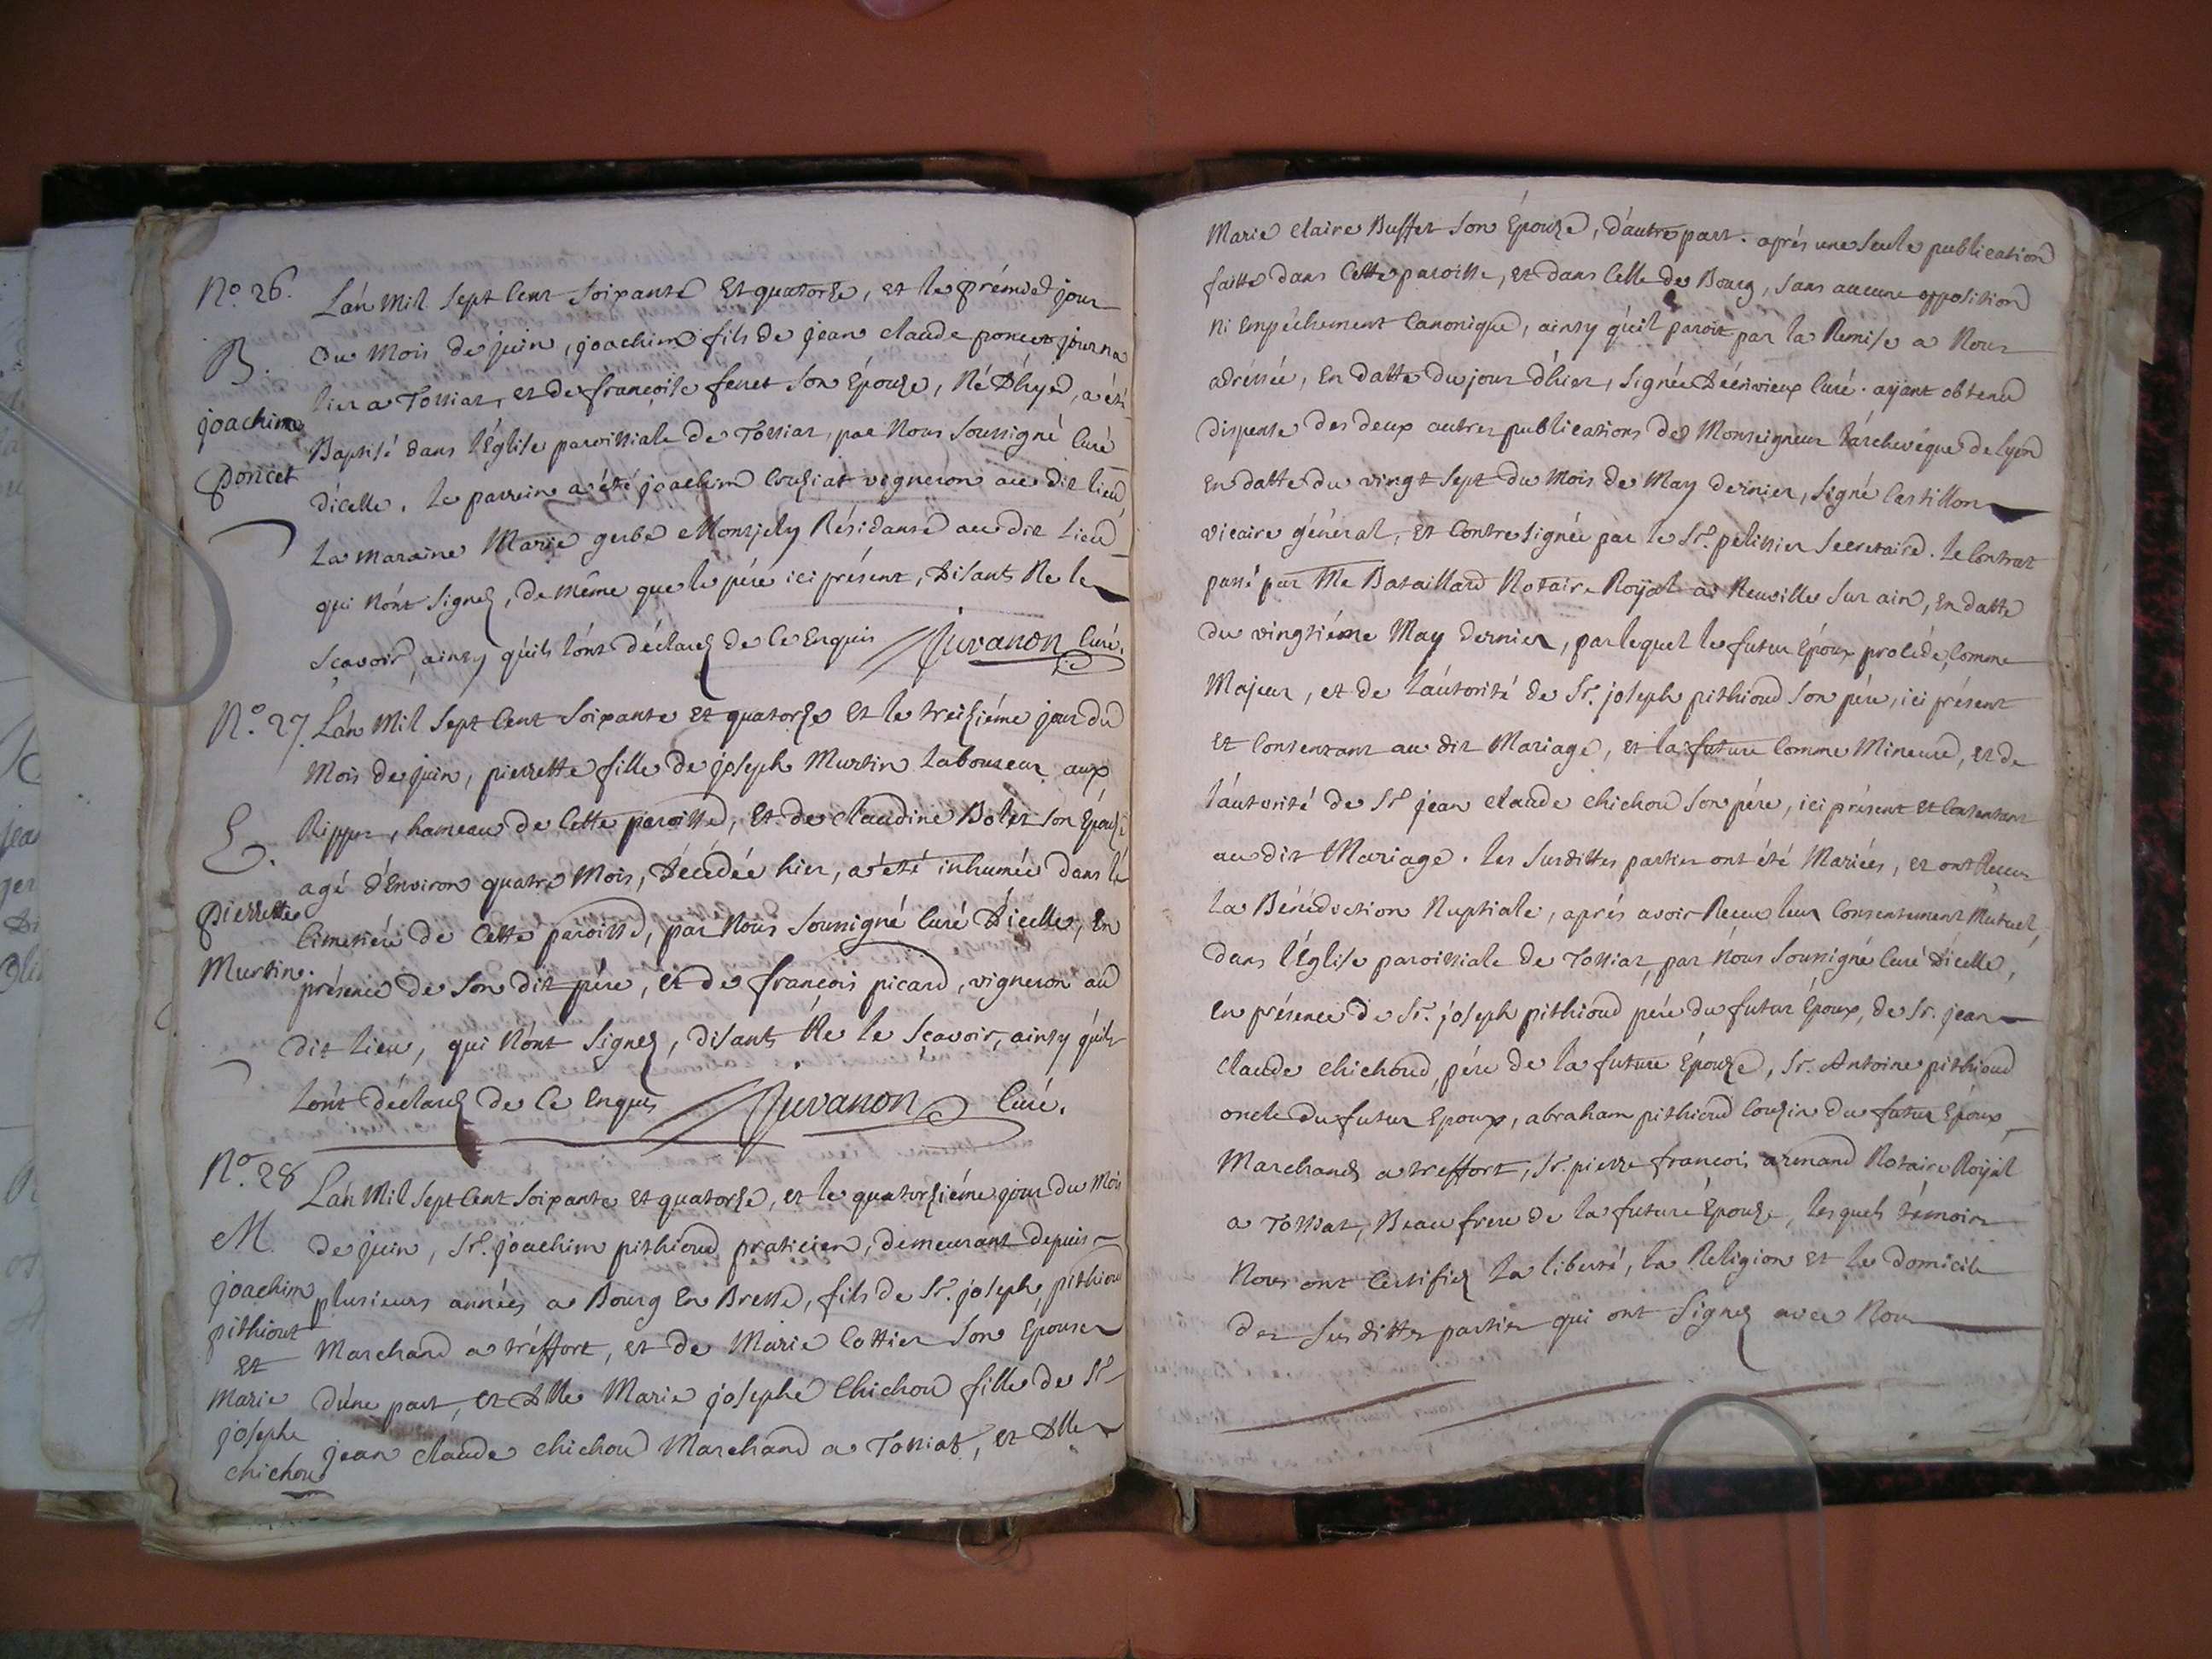 N.o 26.
B.
joachim
poncet
Lán Mil Sept Cent Soixante Et quatorze, et le prémier jour
Du Mois de juin, joachim fils de jean claude poncet journa
lier a Tossiat, et de françoise feret Son Épouze, Né D'hyer, a été
Baptisé dans l'Église paroissiale de Tossiat, par Nous Soussigné Curé
dícelle. Le parrein a été joachim Couziat vigneron au dit lieu,
La maraine Marie gerbe Résidante au dit Lieu
qui Nónt Signez, de même que le pére ici présent, Disants Ne le
Sçavoir, ainsy qúils lónt déclarez de Ce Enquis Juvanon Curé.
N.o 27.
E.
pierrette
Murtin.
Lán Mil Sept Cent Soixante et quatorze Et le treiziéme jour du
Mois de juin, pierrette fille de joseph Murtin Laboureur aux
Rippes, hameau de Cette paroisse, Et de claudine Bolet Son Épouze
agé d'Environ quatre Mois, Décédée hier, a été inhumée dans le
Cimetiére de Cette paroisse, par Nous Soussigné Curé D'icelle, En
présence de Son dit pére, et de françois picard, vigneron au
dit Lieu, qui Nónt Signez, disants Ne le Sçavoir, ainsy qúils
Lónt déclarez de Ce Enquis Juvanon Curé.
N.o 28
M.
joachim
pithiout
Et
Marie
josephe
chichou
Lán Mil Sept Cent Soixante et quatorze, et le quatorziéme jour du Mois
de juin, Sr. joachim pithioud praticien, demeurant depuis
plusieurs années a Bourg En Bresse, fils de Sr. joseph pithiou
Marchand a tréffort, et de Marie Cottier Son Épouse
dúne part, et Dlle Marie josephe Chichou fille de Sr
jean claude chichou Marchand a Tossiat, et Dlle
Marie claire Buffet Son Épouze, dáutre part. aprés une Seule publication
faitte dans Cette paroisse, et dans Celle de Bourg, Sans aucune opposition
Ni Empéchement Canonique, ainsy qúil paroit par la Remise a Nous
adressée, En datte du jour d'hier, Signée Curé. ayant obtenu
dispense des deux autres publications de Monseigneur lárchevéque de Lyon
En datte du vingt Sept du Mois de May dernier, Signé Castillon
vicaire général, Et Contresignée par le Sr. pelissier Secretaire. Le Contrat
passé par Me Bataillard Notaire Royal a Neuville Sur ain, En datte
du vingtiéme May dernier, par lequel le futur Époux procéde, Comme
Majeur, et de láutorité de Sr. joseph pithioud Son pére, ici présent
Et Consentant au dit Mariage, et la future Comme Mineure, et de
láutorité de Sr jean claude chichou Son pére, ici présent Et Consentant
au dit Mariage. Les Susdittes parties ont été Mariées, et ont Receu
La Bénédiction Nuptiale, aprés avoir Receu leur Consentement Mutuel,
dans l'Église paroissiale de Tossiat, par Nous Soussigné Curé D'icelle,
En présence de Sr. joseph pithioud pére du futur Époux, de Sr. jean
claude chichoud, pére de la future Épouze, Sr. Antoine pithioud
oncle du futur Epoux, abraham pithioud Couzin du futur Époux,
Marchands a treffort, Sr. pierre françois armand Notaire Royal
a Tossiat, Beau frere de la future Épouze, lesquels témoins
Nous ont Certifiez La liberté, la Religion et le domicile
des Susdittes parties qui ont Signez avec Nous